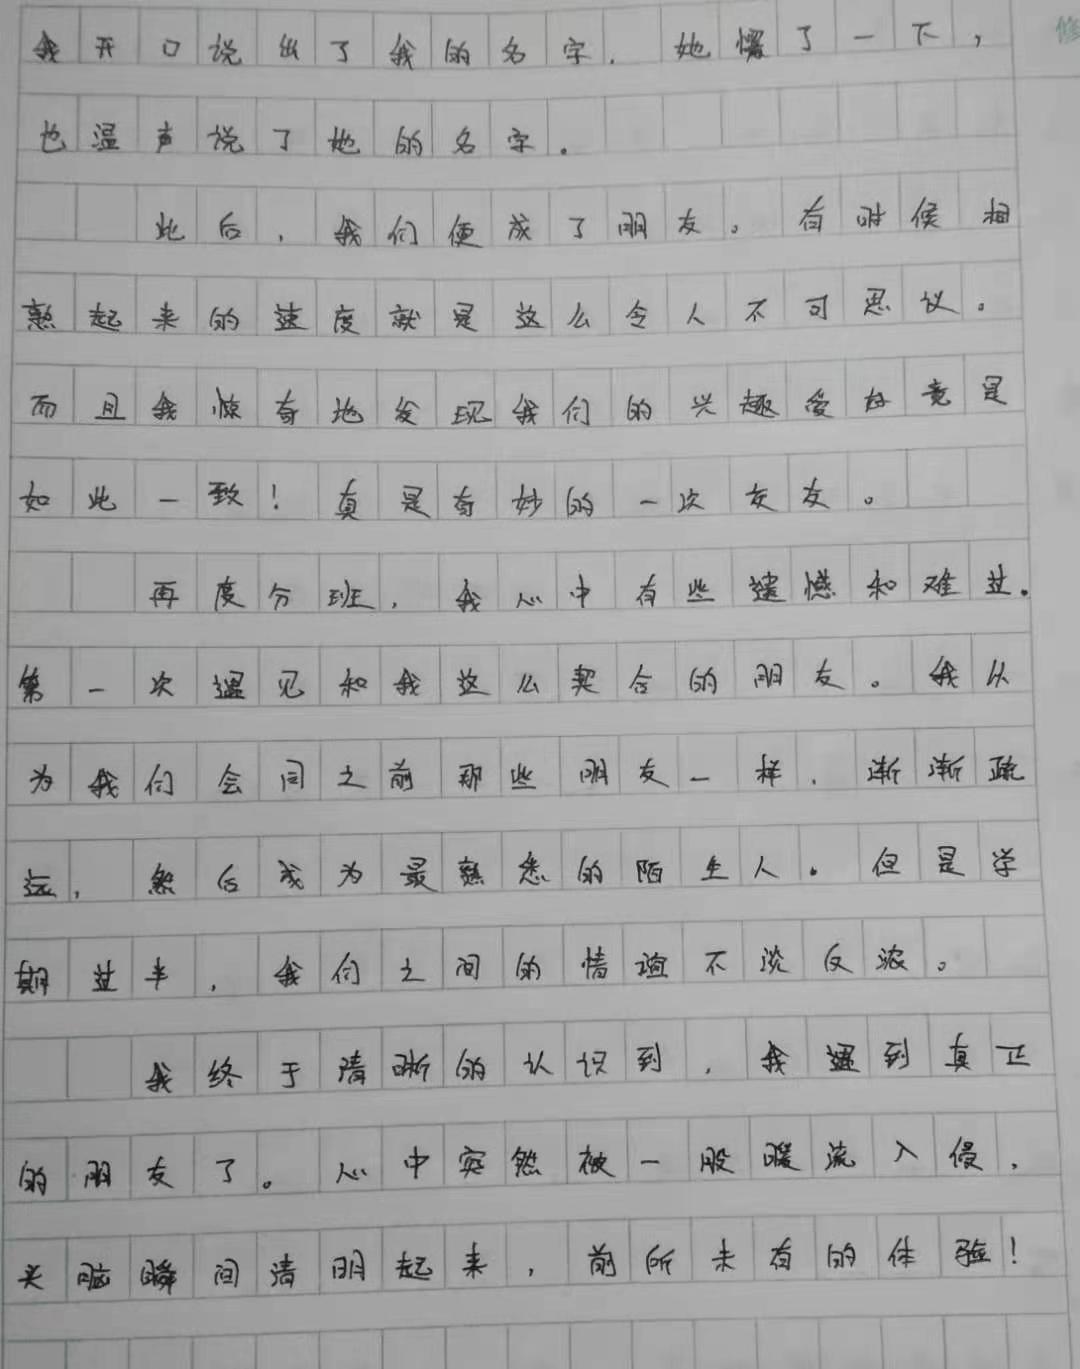 我开口说出了我的名字，她愣了一下，
也温声说了她的名字。
此后，我们便成了朋友。有时候相
熟起来的速度就是这么令人不可思议。
而且我惊奇地发现我们的兴趣爱好竟是
如此一致！真是奇妙的一次交友。
再度分班，我心中有些遗憾和难过。
第一次遇见和我这么契合的朋友。我以
为我们会同之前那些朋友一样，渐渐疏
远，然后成为最熟悉的陌生人。但是学
期过半，我们之间的情谊不淡反浓。
我终于清晰的认识到，我遇到真正
的朋友了。心中突然被一股暖流入侵，
头脑瞬间清明起来，前所未有的体验！